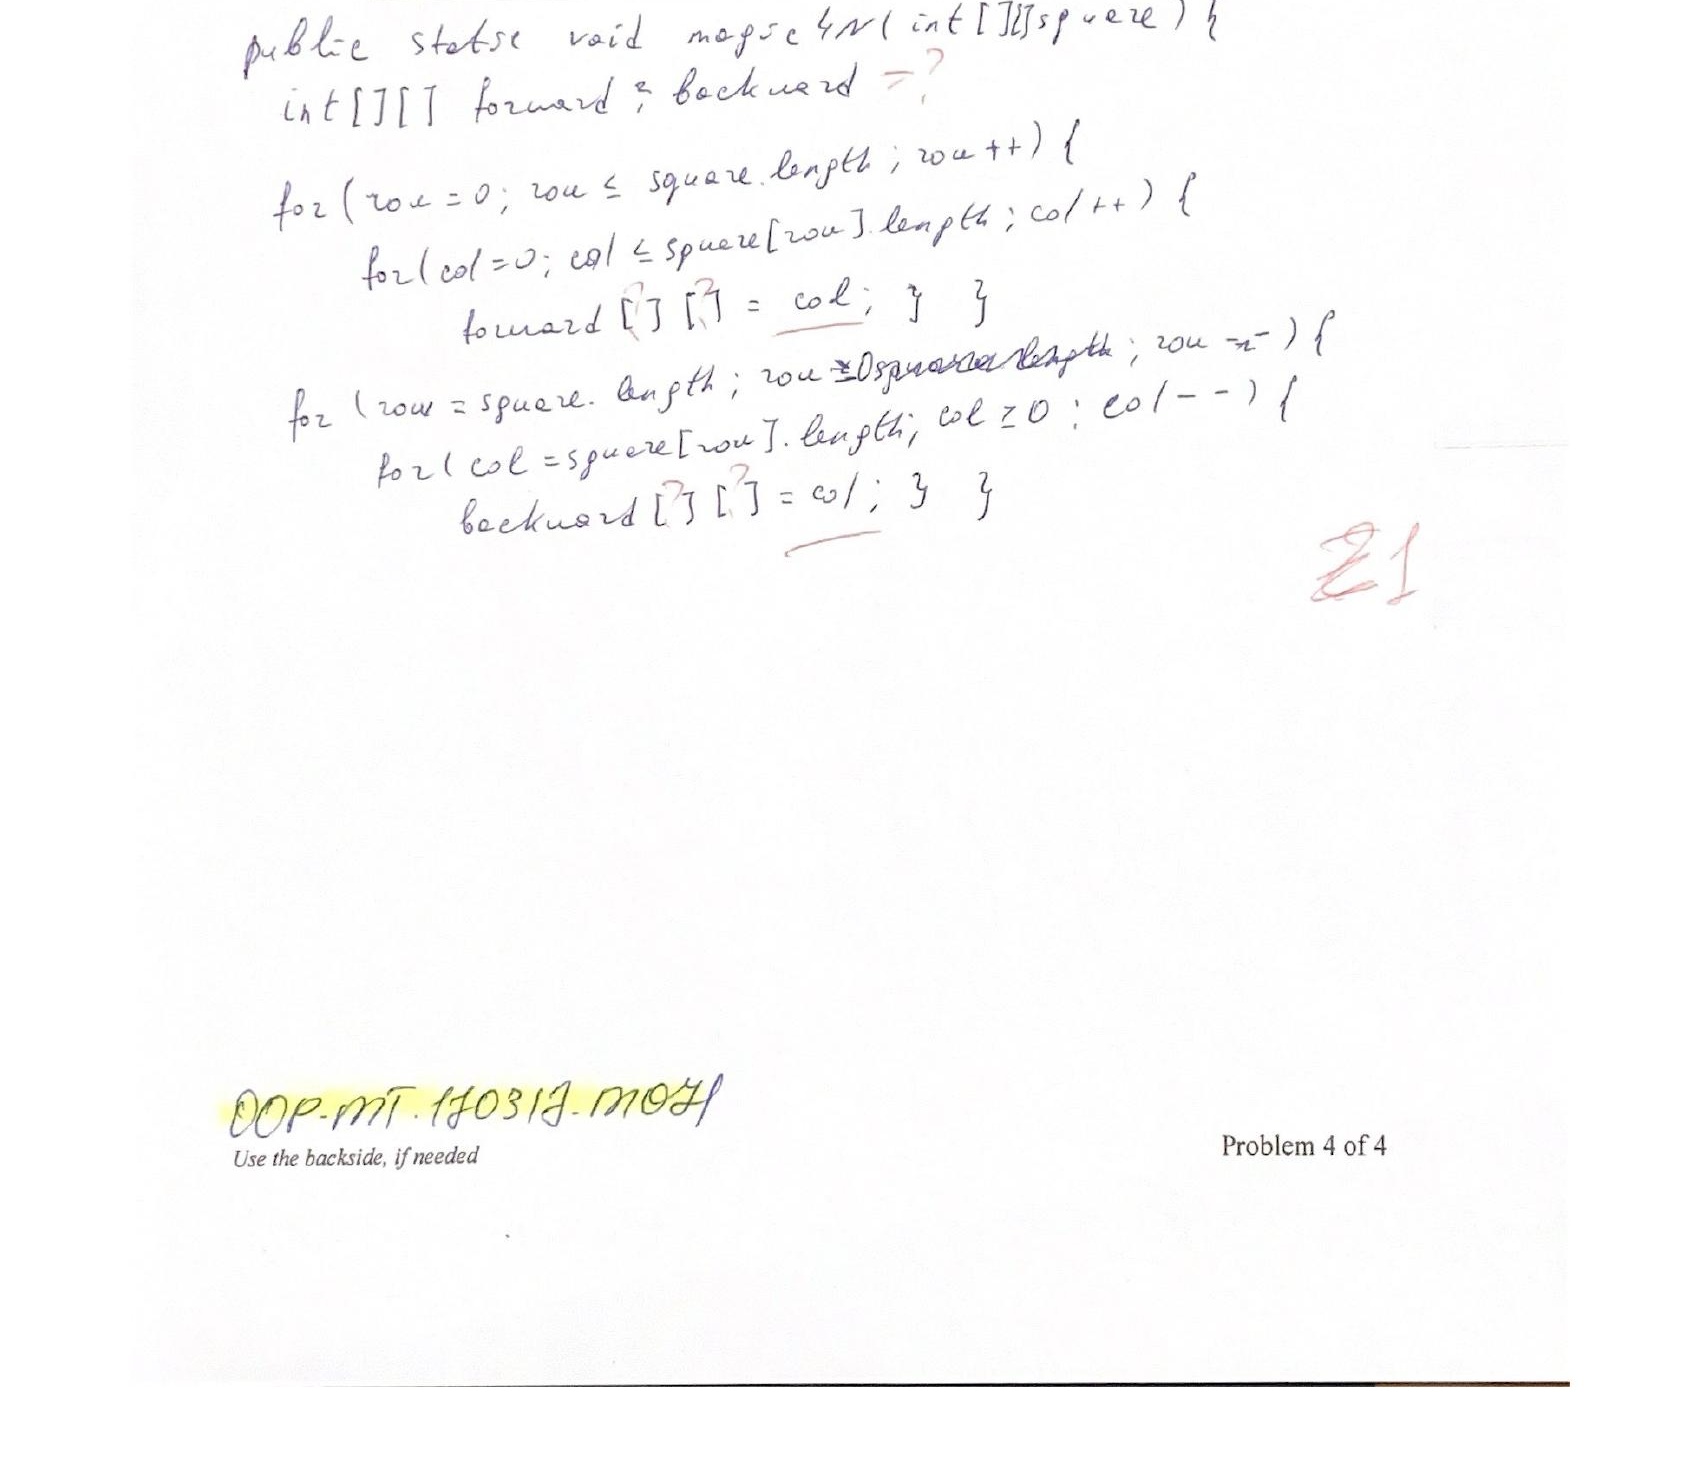 public static void magic4N(int[][]square){
int[][] forward; backward =?
for(row=0; row ≤ square.length; row++){
for(col=0; col ≤ square[row].length; col++){
forward[?][?] = col; } }
for (row = square.length; row ≥0 ; row --){
for(col=square[row].length; col ≥ 0; col--){
backward[?][?] = col; } }
21
OOP-MT.170317.M071
Use the backside, if needed
Problem 4 of 4